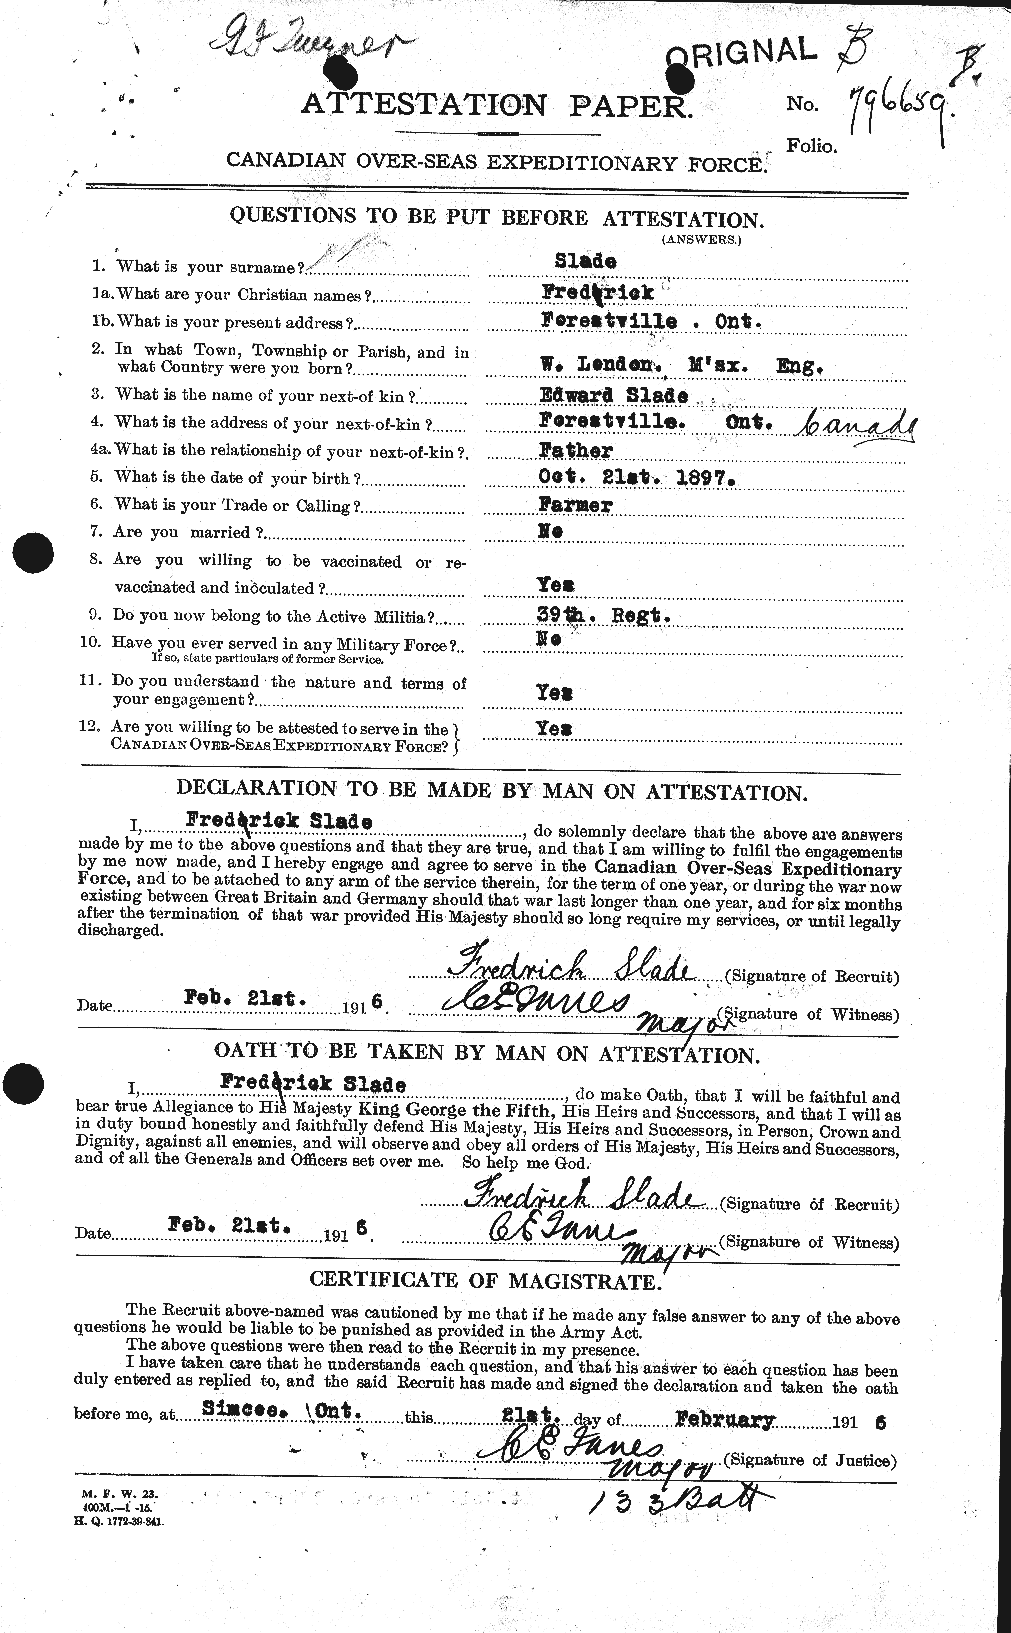 G F Turner
ORIGNAL B
B.
ATTESTATION PAPER.
No. 796659.
Folio.
CANADIAN OVER-SEAS EXPEDITIONARY FORCE.
QUESTIONS TO BE PUT BEFORE ATTESTATION.
(ANSWERS.)
1. What is your surname? Slade
1a. What are your Christian names? Frederick
1b. What is your present address? Forestville . Ont.
2. In what Town, Township or Parish, and in
what Country were you born? W. London. M'sx. Eng.
3. What is the name of your next-of kin? Edward Slade
4. What is the address of your next-of-kin? Forestville. Ont. Canada
4a. What is the relationship of your next-of-kin? Father
5. What is the date of your birth? Oct. 21st. 1897.
6. What is your Trade or Calling? Farmer
7. Are you married? No
8. Are you willing to be vaccinated or re-
vaccinated and inoculated? Yes
9. Do you now belong to the Active Militia? 39th. Regt.
10. Have you ever served in any Military Force? No
If so, state particulars of former Service.
11. Do you understand the nature and terms of
your engagement? Yes
12. Are you willing to be attested to serve in the Yes
CANADIAN OVER-SEAS EXPEDITIONARY FORCE?
DECLARATION TO BE MADE BY MAN ON ATTESTATION.
I, Frederick Slade, do solemnly declare that the above are answers
made by me to the above questions and that they are true, and that I am willing to fulfil the engagements
by me now made, and I hereby engage and agree to serve in the Canadian Over-Seas Expeditionary
Force, and to be attached to any arm of the service therein, for the term of one year, or during the war now
existing between Great Britain and Germany should that war last longer than one year, and for six months
after the termination of that war provided His Majesty should so long require my services, or until legally
discharged.
Fredrick Slade (Signature of Recruit)
Date Feb. 21st. 1916. C E Innes Major (Signature of Witness)
OATH TO BE TAKEN BY MAN ON ATTESTATION.
I, Frederick Slade, do make Oath, that I will be faithful and
bear true Allegiance to His Majesty King George the Fifth, His Heirs and Successors, and that I will as
in duty bound honestly and faithfully defend His Majesty, His Heirs and Successors, in Person, Crown and
Dignity, against all enemies, and will observe and obey all orders of His Majesty, His Heirs and Successors,
and of all the Generals and Officers set over me. So help me God.
Fredrick Slade (Signature of Recruit)
Date Feb. 21st. 1916. C E Innes Major (Signature of Witness)
CERTIFICATE OF MAGISTRATE.
The Recruit above-named was cautioned by me that if he made any false answer to any of the above
questions he would be liable to be punished as provided in the Army Act.
The above questions were then read to the Recruit in my presence.
I have taken care that he understands each question, and that his answer to each question has been
duly entered as replied to, and the said Recruit has made and signed the declaration and taken the oath
before me, at Simcoe. Ont. this 21st. day of February 1916
C E Innes Major (Signature of Justice)
133 Batt
M. F. W. 23.
400M.—1-15.
H. Q. 1772-39-841.